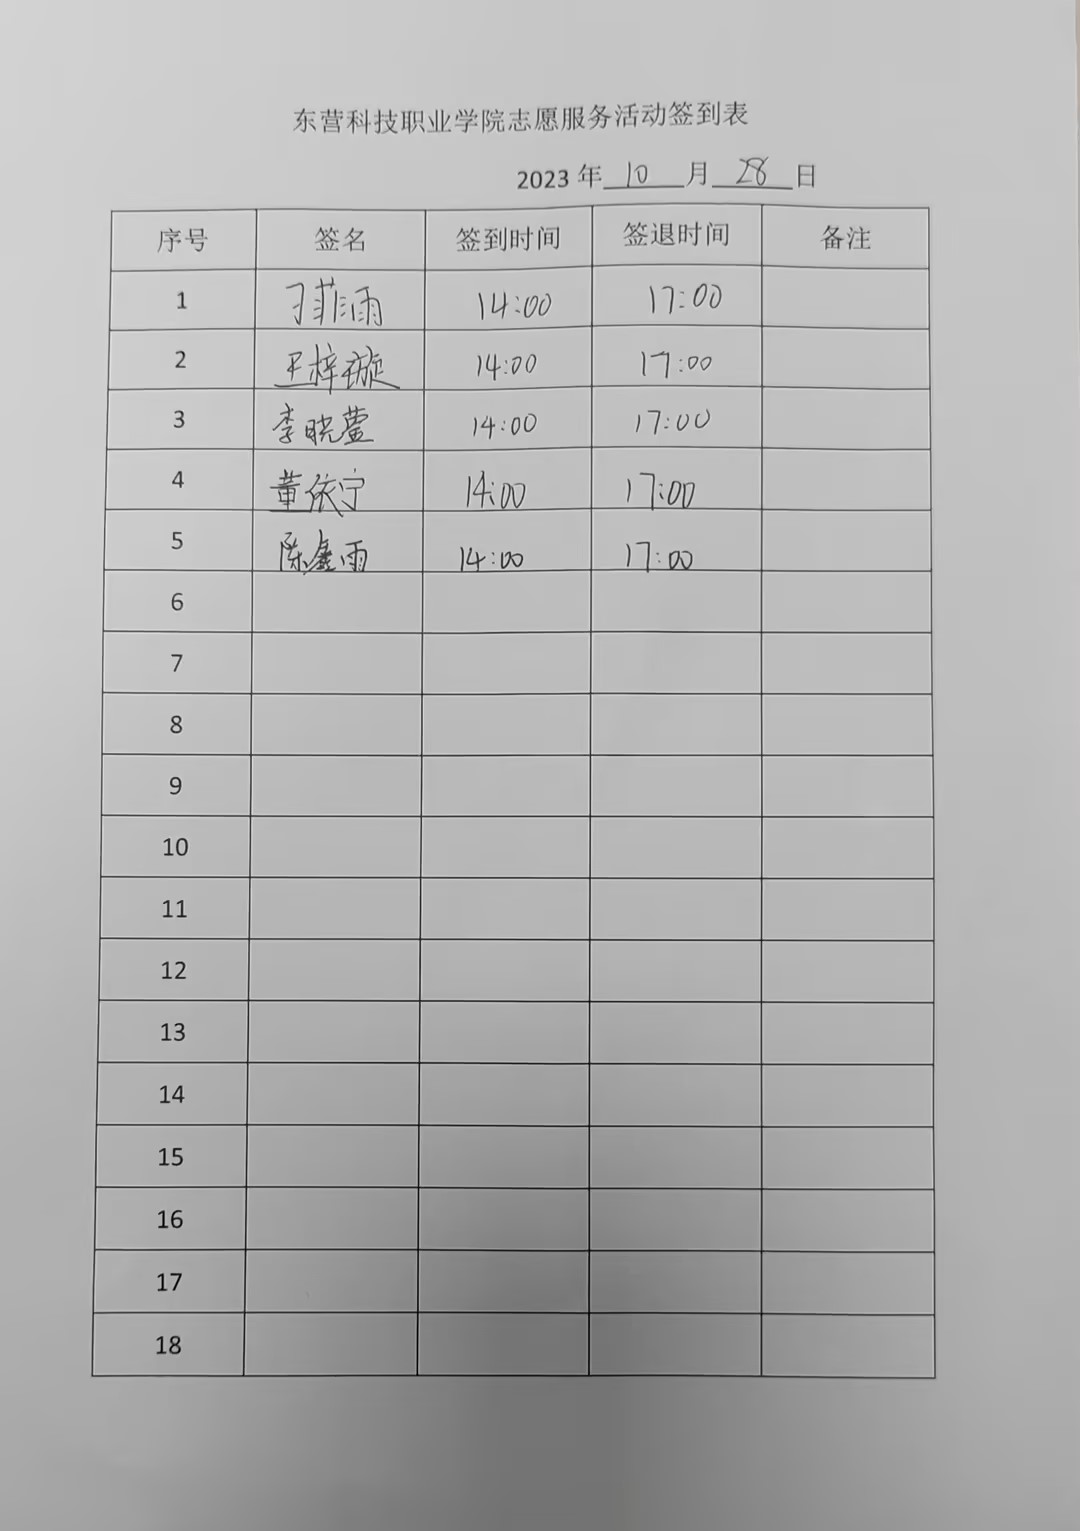 东营科技职业学院志愿服务活动签到表
2023 年 10 月 28 日
序号 签名 签到时间 签退时间 备注
1 刁菲雨 14:00 17:00
2 王梓璇 14:00 17:00
3 李晓萱 14:00 17:00
4 董依宁 14:00 17:00
5 陈鑫雨 14:00 17:00
6
7
8
9
10
11
12
13
14
15
16
17
18